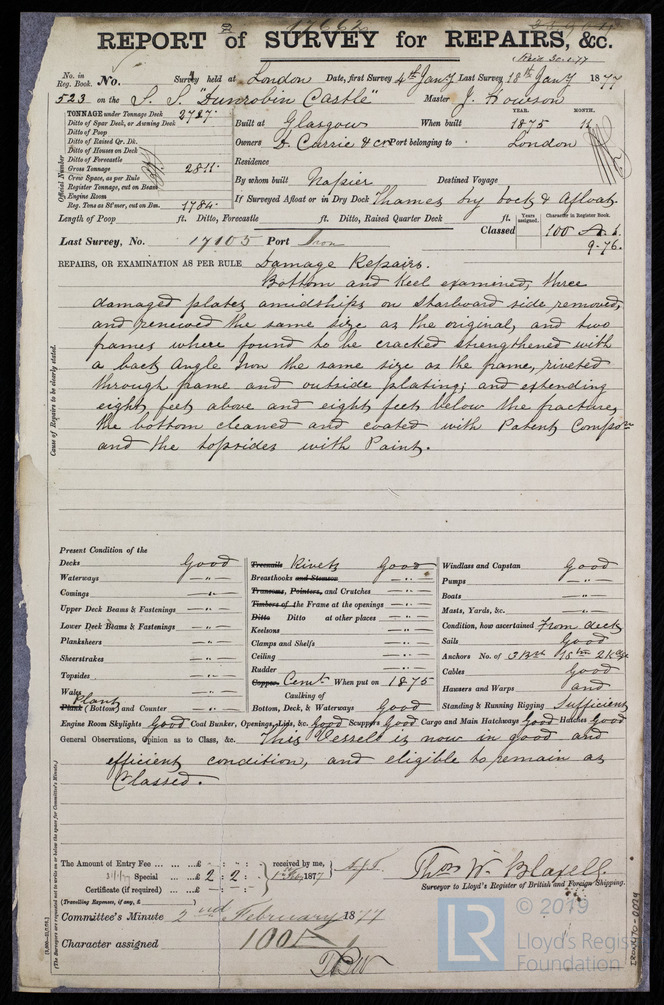 17662
REPORT of SURVEY for REPAIRS, &c.
No. in Reg. Book. No. Survey held at London Date, first Survey 4th Jany Last Survey 18th Jany 1877
523 on the S. S. "Dunrobin Castle" Master J. Howson
TONNAGE under Tonnage Deck 2727
Ditto of Spar Deck, or Awning Deck
Ditto of Poop
Ditto of Raised Qr. Dk.
Ditto of Houses on Deck
Ditto of Forecastle
Gross Tonnage 2811
Crew Space, as per Rule
Register Tonnage, cut on Beam
Engine Room
Reg. Tons as St'mer, cut on Bm. 1784
Official Number
YEAR. MONTH.
Built at Glasgow When built 1875 11
Owners D. Currie & Co Port belonging to London
Residence
By whom built Napier Destined Voyage
If Surveyed Afloat or in Dry Dock Thames dry dock & Afloat
Length of Poop ft. Ditto, Forecastle ft. Ditto, Raised Quarter Deck ft. Years assigned. Character in Register Book.
Classed 100 A 1.
9.76.
Last Survey, No. 17105 Port Iron
REPAIRS, OR EXAMINATION AS PER RULE Damage Repairs.
Bottom and Keel examined, three
damaged plates amidships on starboard side removed,
and renewed the same size as the original, and two
frames where found to be cracked strengthened with
a back Angle Iron the same size as the frame, riveted
through frame and outside plating; and extending
eight feet above and eight feet below the fracture,
the bottom cleaned and coated with Patent Compon
and the topsides with Paint.
Cause of Repairs to be clearly stated.
Present Condition of the
Decks Good
Waterways —"—
Comings —"—
Upper Deck Beams & Fastenings —"—
Lower Deck Beams & Fastenings —"—
Planksheers —"—
Sheerstrakes —"—
Topsides —"—
Wales
Plank Plank (Bottom) and Counter —"—
Treenails Rivets Good
Breasthooks and Stemson —"—
Transoms, Pointers, and Crutches —"—
Timbers of the Frame at the openings —"—
Ditto Ditto at other places —"—
Keelsons —"—
Clamps and Shelfs —"—
Ceiling —"—
Rudder —"—
Copper Cemt. When put on 1875
Caulking of
Bottom, Deck, & Waterways Good
Windlass and Capstan Good
Pumps —"—
Boats —"—
Masts, Yards, &c. —"—
Condition, how ascertained From deck
Sails Good
Anchors No. of 3 Brs 1 Stm 2 Kedge
Cables Good
Hawsers and Warps and
Standing & Running Rigging Sufficient
Engine Room Skylights Good Coal Bunker, Openings, Lids, &c. Good Scuppers Good Cargo and Main Hatchways Good Hatches Good
General Observations, Opinion as to Class, &c. This Vessel is now in good and
efficient condition, and eligible to remain as
Classed.
The Amount of Entry Fee ... £ : :
Special ... £ 2 : 2 :
Certificate (if required) ... £ : :
(Travelling Expenses, if any, £ )
received by me,
1877
Thos W. Blaxell.
Surveyor to Lloyd's Register of British and Foreign Shipping.
Committee's Minute 2nd February 1877
Character assigned 100 A 1
© 2019
Lloyd's Register
Foundation
LR
IRON470-0024